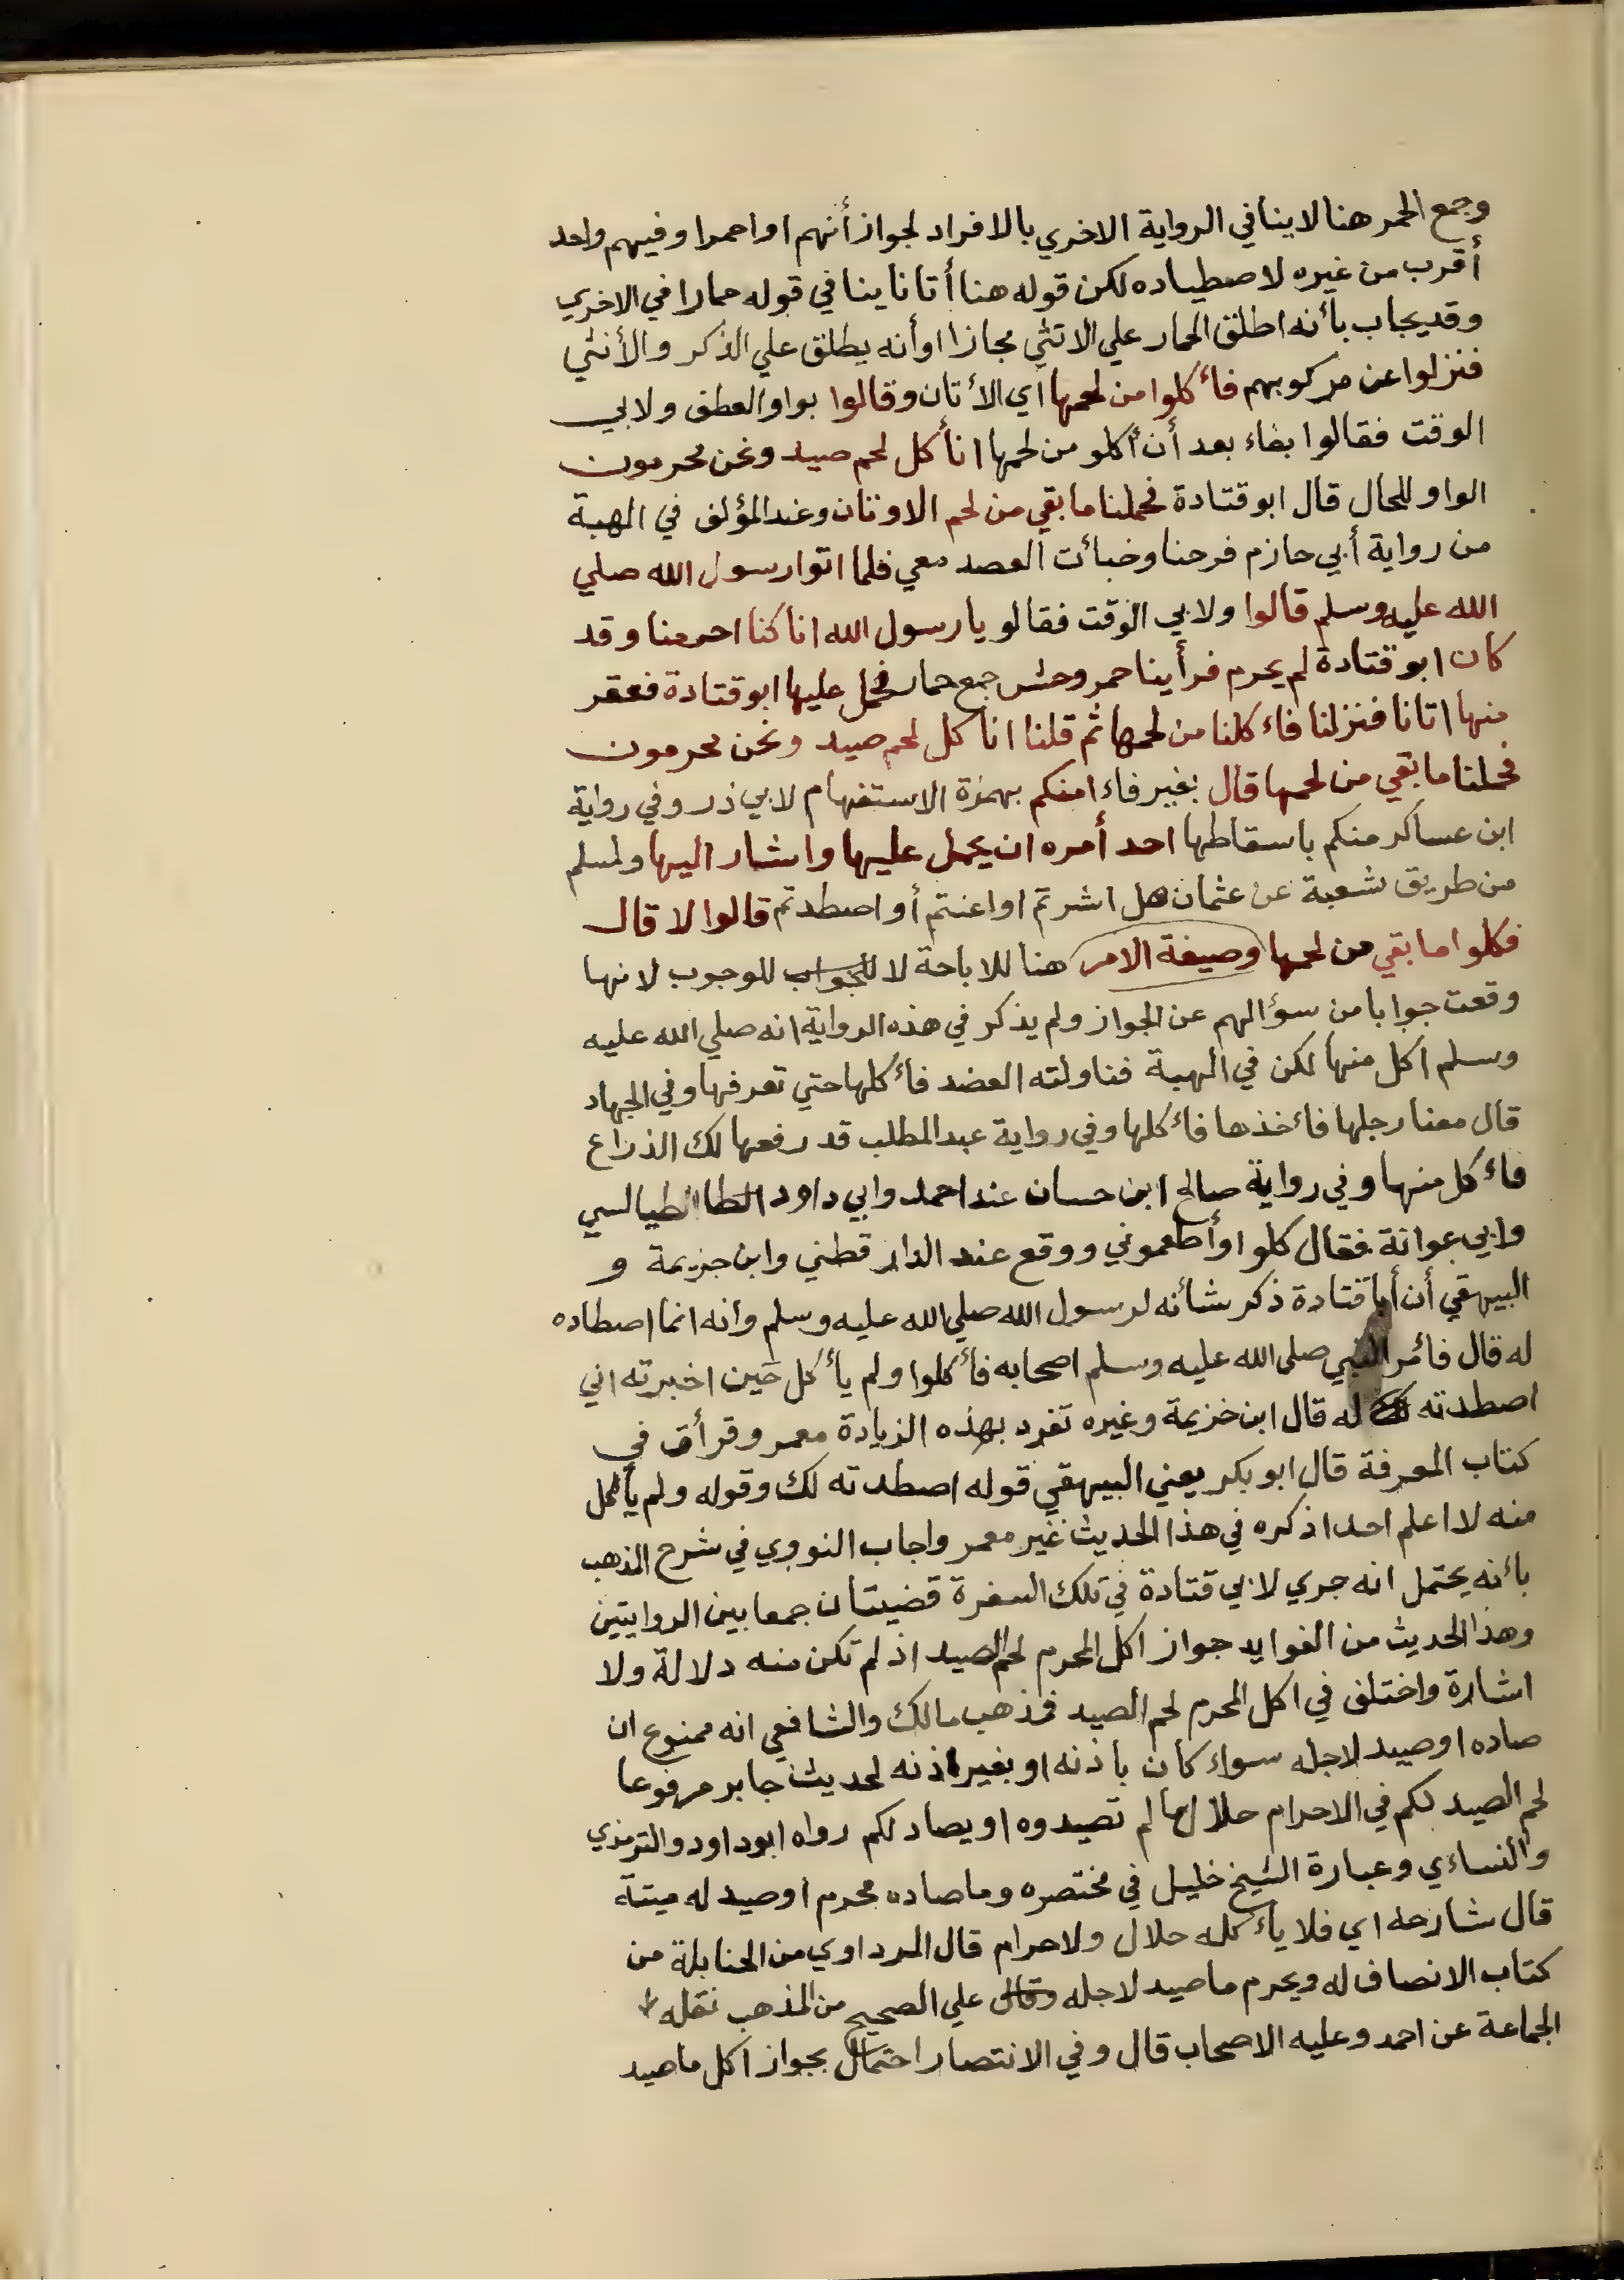 وجمع الحمر هنا لاينافي الرواية الاخري بالافراد لجواز أنهم اواحمرا وفيهم واحد
أقرب من غيره لاصطياده لكن قوله هنا أتانا ينافي قوله حمارا في الاخري
وقد يجاب بأنه اطلق الحمار علي الانثي مجازا اوأنه يطلق علي الذكر والأنثي
فنزلوا عن مركوبهم فاءكلوا من لحمها اي الأتان وقالوا بواو العطف ولابي
الوقت فقالوا بفاء بعد أن أكلو من لحمها انأكل لحم صيد ونحن محرمون
الواو للحال قال ابو قتادة فحملنا ما بقي من لحم الاوتان وعند المؤلف في الهبة
من رواية أبي حازم فرحنا وخبائت العصد معي فلما اتوا رسول الله صلي
الله عليه وسلم قالوا ولابي الوقت فقالو يارسول الله انا كنا احرمنا وقد
كان ابو قتادة لم يحرم فرأينا حمر وحش جمع حمار فحمل عليها ابو قتادة فعقر
منها اتانا فنزلنا فاءكلنا من لحمها ثم قلنا اناكل لحم صيد ونحن محرمون
فحملنا ما بقي من لحمها قال بغير فاء امنكم بهمزة الاستفهام لابي ذر وفي رواية
ابن عساكر منكم باسقاطها احد أمره ان يحمل عليها واشار اليها ولمسلم
من طريق شعبة عن عثمان هل اشرتم اواعنتم أو اصطدتم قالوا لا قال
فكلوا ما بقي من لحمها وصيغة الامر هنا للاباحة لا للجواب للوجوب لانها
وقعت جوابا من سؤالهم عن الجواز ولم يذكر في هذه الرواية انه صلي الله عليه
وسلم اكل منها لكن في الهبة فناولته العضد فاءكلها حتي تعرفها وفي الجهاد
قال معنا رجلها فاءخذها فاءكلها وفي رواية عبد المطلب قد رفعها لك الذراع
فاءكل منها وفي رواية صالح ابن حسان عند احمد وابي داود الطا الطيالسي
وابي عوانة فقال كلوا وأطعموني ووقع عند الدار قطني وابن جزيمة و
البيهقي أن أبا قتادة ذكر شائنه لرسول الله صلي الله عليه وسلم وانه انما اصطاده
له قال فائمر النبي صلي الله عليه وسلم اصحابه فأكلوا ولم يأكل حين اخبرته اني
اصطدته له قال ابن خزيمة وغيره تفرد بهذه الزيادة معمر وقرأت في
كتاب المعرفة قال ابو بكر يعني البيهقي قوله اصطدته لك وقوله ولم يأكل
منه لا اعلم احدا ذكره في هذا الحديث غير معمر واجاب النووي في شرح المذهب
بائنه يحتمل انه جري لابي قتادة في تلك السفرة قضيتان جمعا بين الروايتين
وهذا الحديث من الفوايد جواز اكل المحرم لحم الصيد اذ لم تكن منه دلالة ولا
اشارة واختلف في اكل المحرم لحم الصيد فذهب مالك والشافعي انه ممنوع ان
صاده اوصيد لاجله سواء كان باذنه او بغير اذنه لحديث جابر مرفوعا
لحم الصيد لكم في الاحرام حلال ما لم تصيدوه او يصاد لكم رواه ابو داود والترمذي
والنساءي وعبارة الشيخ خليل في مختصره وما صاده محرم اوصيد له ميتة
قال شارحه اي فلا يأكله حلال ولاحرام قال المرداوي من الحنابلة من
كتاب الانصاف له ويحرم ما صيد لاجله وقال علي الصحيح من المذهب نقله
الجماعة عن احمد وعليه الاصحاب قال وفي الانتصار احتمال بجواز اكل ما صيد